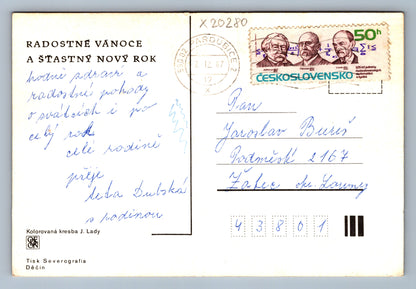 X 20280
RADOSTNÉ VÁNOCE
A ŠŤASTNÝ NOVÝ ROK
hodně zdraví a
radostné pohody
o svátcích i po
celý rok
celé rodině
přeje
Dubská
s rodinou
Kolorovaná kresba J. Lady
Tisk Severografia
Děčín
PARDUBICE 2
12.87
50h
ČESKOSLOVENSKO
Pan
Jaroslav Bureš
Podměstí 2167
Žatec okr. Louny
43801